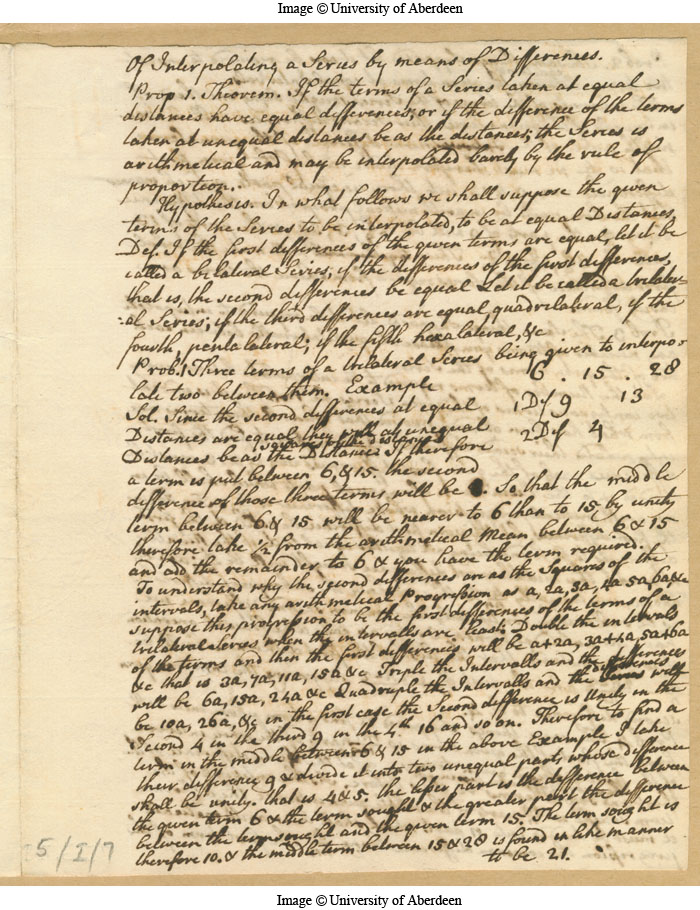 Image © University of Aberdeen
Of Interpolating a Series by means of Differences.
Prop 1. Theorem. If the terms of a Series taken at equal
distances have equal differences; or if the difference of the terms
taken at unequal distances be as the distances; the Series is
arithmetical and may be interpolated barely by the rule of
proportion.
Hypothesis. In what follows we shall suppose the given
terms of the Series to be interpolated, to be at equal Distances,
Def. If the first differences of the given terms are equal, let it be
called a bilateral Series, if the differences of the first differences,
that is, the second differences be equal Let it be called a trilater-
:al Series; if the third differences are equal, quadrilateral, if the
fourth, pentalateral; if the fifth hexalateral, &c
Prob. 1. Three terms of a trilateral Series being given to interpo-
late two between them. Example 6 . 15 . 28
Sol. Since the second differences at equal 1 Df 9 13
Distances are equal they will at unequal 2 Df 4
squares of the distances
Distances be as the Distances If therefore
a term is put between 6, & 15. the second
difference of those three terms will be So that the middle
term between 6 & 15 will be nearer to 6 than to 15 by unity
therefore take ½ from the arithmetical Mean between 6 & 15
and add the remainder to 6 & you have the term required.
To understand why the second differences are as the Squares of the
intervals, take any arithmetical Progression as a, 2a, 3a, 4a 5a, 6a, &c
suppose this progression to be the first differences of the terms of a
trilateral series when the intervalls are least. Double the intervals
of the terms and then the first differences will be a+2a, 3a+4a, 5a+6a
&c that is 3a, 7a, 11a, 15a &c Triple the Intervalls and the differences
will be 6a, 15a, 24a &c Quadruple the Intervalls and the will
be 10a, 26a, &c in the first case the Second difference is Unity in the
Second 4 in the third 9 in the 4th 16 and so on. Therefore to find a
term in the middle between 6 & 15 in the above Example I take
their difference 9 & divide it into two unequal parts whose difference
shall be unity. that is 4 & 5. the lesser part is the difference between
the given term 6 & the term sought & the greater part the difference
between the term sought and the given term 15. The term sought is
therefore 10. & the middle term between 15 & 28 is found in like manner
to be 21.
5/I/7
Image © University of Aberdeen